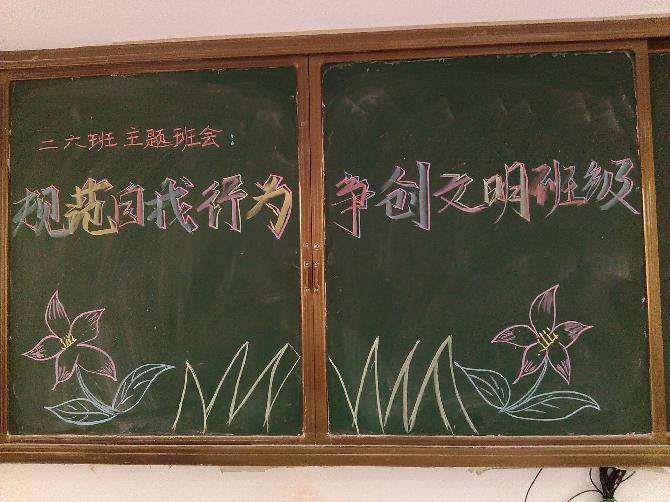 二六班主题班会：
规范自我行为 争创文明班级